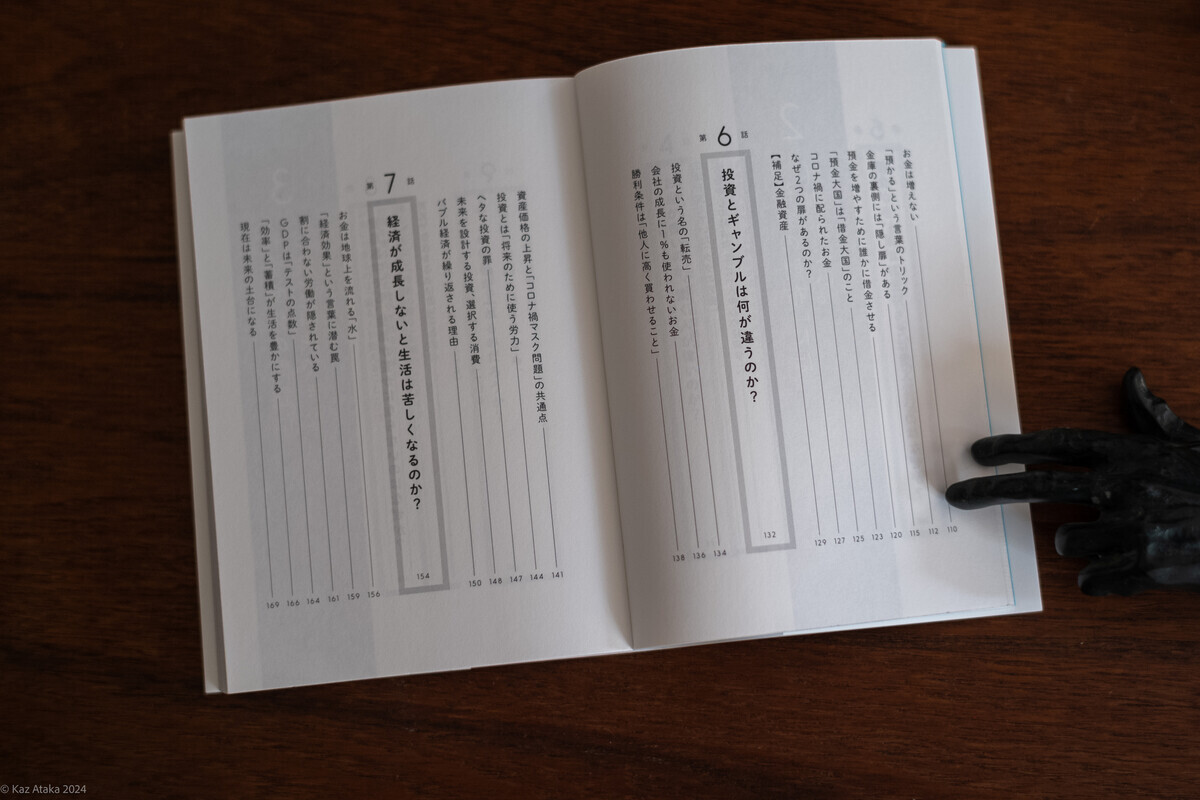 お金は増えない 110
「預かる」という言葉のトリック 112
金庫の裏側には「隠し扉」がある 115
預金を増やすために誰かに借金させる 120
「預金大国」は「借金大国」のこと 123
コロナ禍に配られたお金 125
なぜ2つの扉があるのか? 127
【補足】金融資産 129
第6話
投資とギャンブルは何が違うのか? 132
投資という名の「転売」 134
会社の成長に1%も使われないお金 136
勝利条件は「他人に高く買わせること」 138
資産価格の上昇と「コロナ禍マスク問題」の共通点 141
投資とは「将来のために使う労力」 144
ヘタな投資の罪 147
未来を設計する投資、選択する消費 148
バブル経済が繰り返される理由 150
第7話
経済が成長しないと生活は苦しくなるのか? 154
お金は地球上を流れる「水」 156
「経済効果」という言葉に潜む罠 159
割に合わない労働が隠されている 161
GDPは「テストの点数」 164
「効率」と「蓄積」が生活を豊かにする 166
現在は未来の土台になる 169
© Kaz Ataka 2024